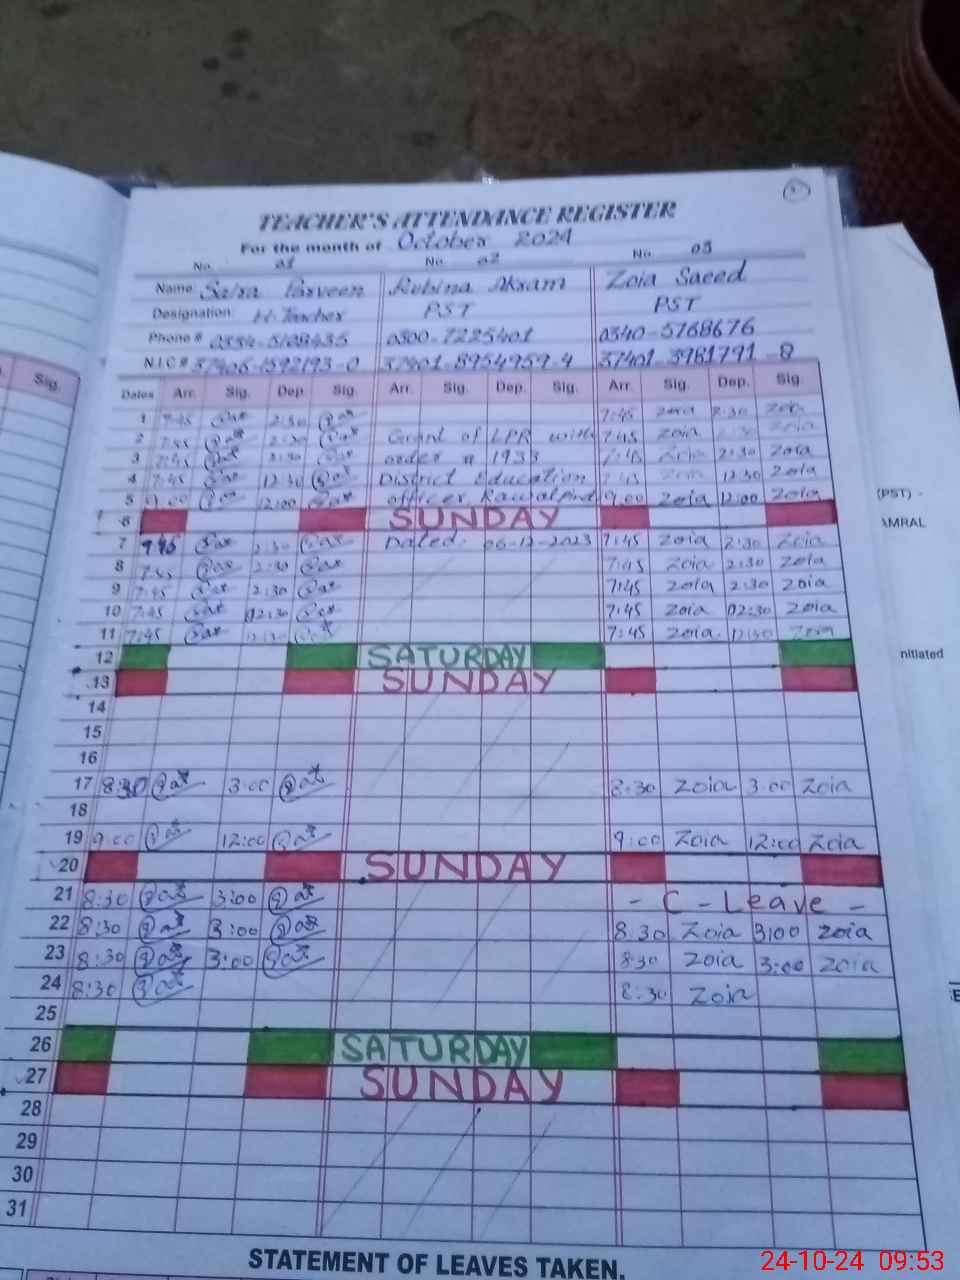 TEACHER'S ATTENDANCE REGISTER
For the month of October 2024
No. 01 No. 02 No. 03
Name Saira Parveen Rubina Akram Zoia Saeed
Designation H-Teacher PST PST
Phone # 0334-5108435 0300-7225401 0340-5768676
N.I.C # 37406-1592193-0 37401-8954959-4 37401-3981791-8
Sig.
Dates Arr. Sig. Dep. Sig. Arr. Sig. Dep. Sig. Arr. Sig. Dep. Sig.
1 7:45 2:30 7:45 Zoia 2:30 Zoia
2 7:45 2:30 Grant of LPR with 7:45 Zoia Zoia
3 7:45 2:30 order # 1933 7:45 Zoia 2:30 Zoia
4 7:45 12:30 District Education 7:45 Zoia 12:30 Zoia
5 9:00 12:00 officer Rawalpindi 9:00 Zoia 12:00 Zoia
6 SUNDAY
7 7:45 2:30 Dated: 06-12-2023 7:45 Zoia 2:30 Zoia
8 7:45 2:30 7:45 Zoia 2:30 Zoia
9 7:45 2:30 7:45 Zoia 2:30 Zoia
10 7:45 02:30 7:45 Zoia 02:30 Zoia
11 7:45 12:30 7:45 Zoia 12:30 Zoia
12 SATURDAY
13 SUNDAY
14
15
16
17 8:30 3:00 8:30 Zoia 3:00 Zoia
18
19 9:00 12:00 9:00 Zoia 12:00 Zoia
20 SUNDAY
21 8:30 3:00 - C - Leave -
22 8:30 3:00 8:30 Zoia 3:00 Zoia
23 8:30 3:00 8:30 Zoia 3:00 Zoia
24 8:30 8:30 Zoia
25
26 SATURDAY
27 SUNDAY
28
29
30
31
STATEMENT OF LEAVES TAKEN.
(PST) -
AMRAL
nitiated
24-10-24 09:53